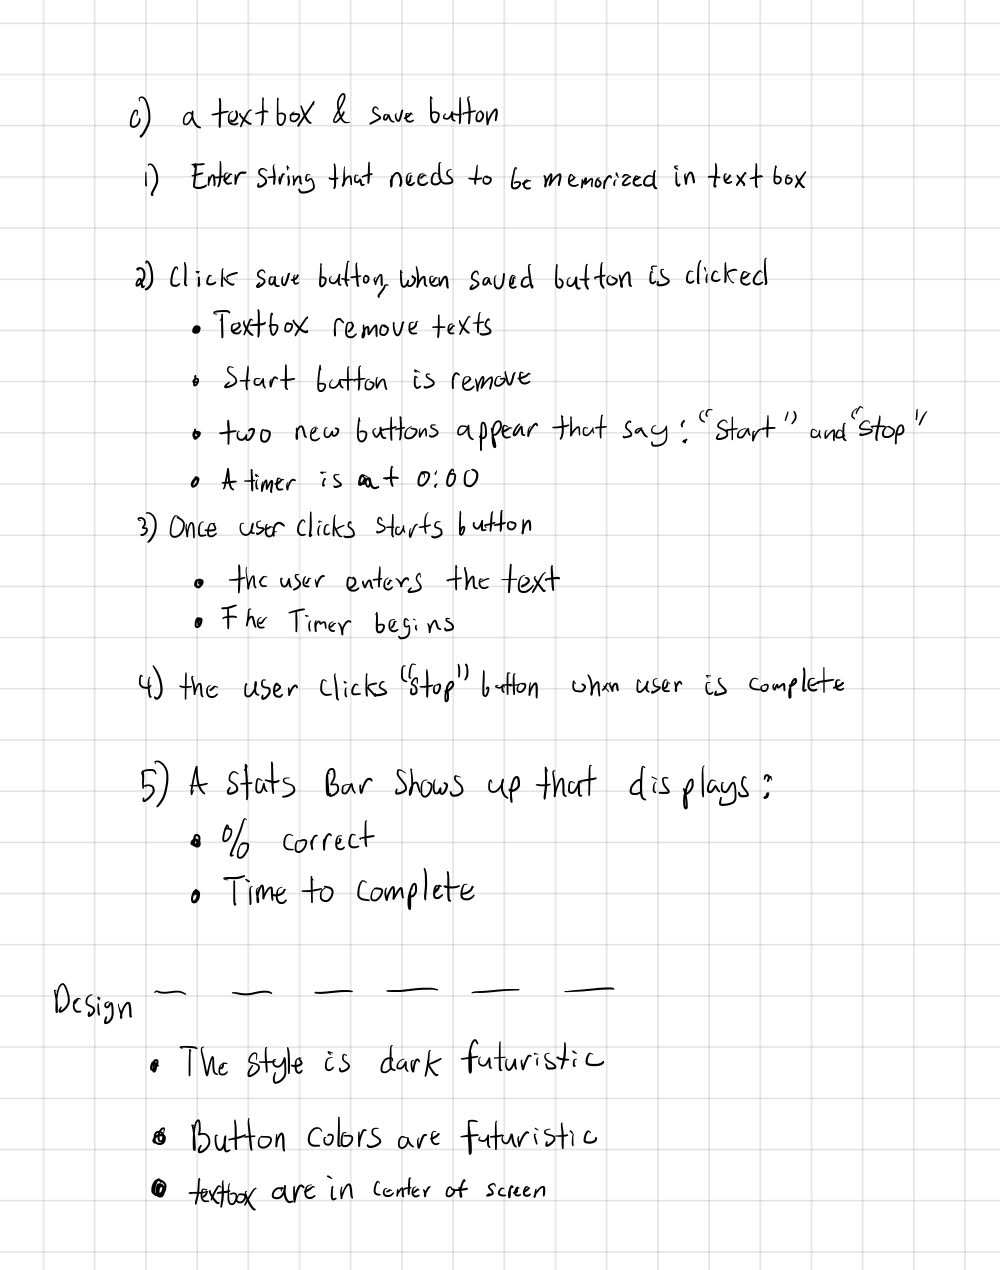 c) a textbox & save button
1) Enter string that needs to be memorized in text box
2) Click save button, when saved button is clicked
• Textbox remove texts
• Start button is remove
• two new buttons appear that say: "Start" and "Stop"
• A timer is at 0:00
3) Once user clicks starts button
• the user enters the text
• The Timer begins
4) the user clicks "Stop" button when user is complete
5) A Stats Bar shows up that displays:
• % correct
• Time to complete
Design — — — — — —
• The style is dark futuristic
• Button colors are futuristic
• textbox are in center of screen